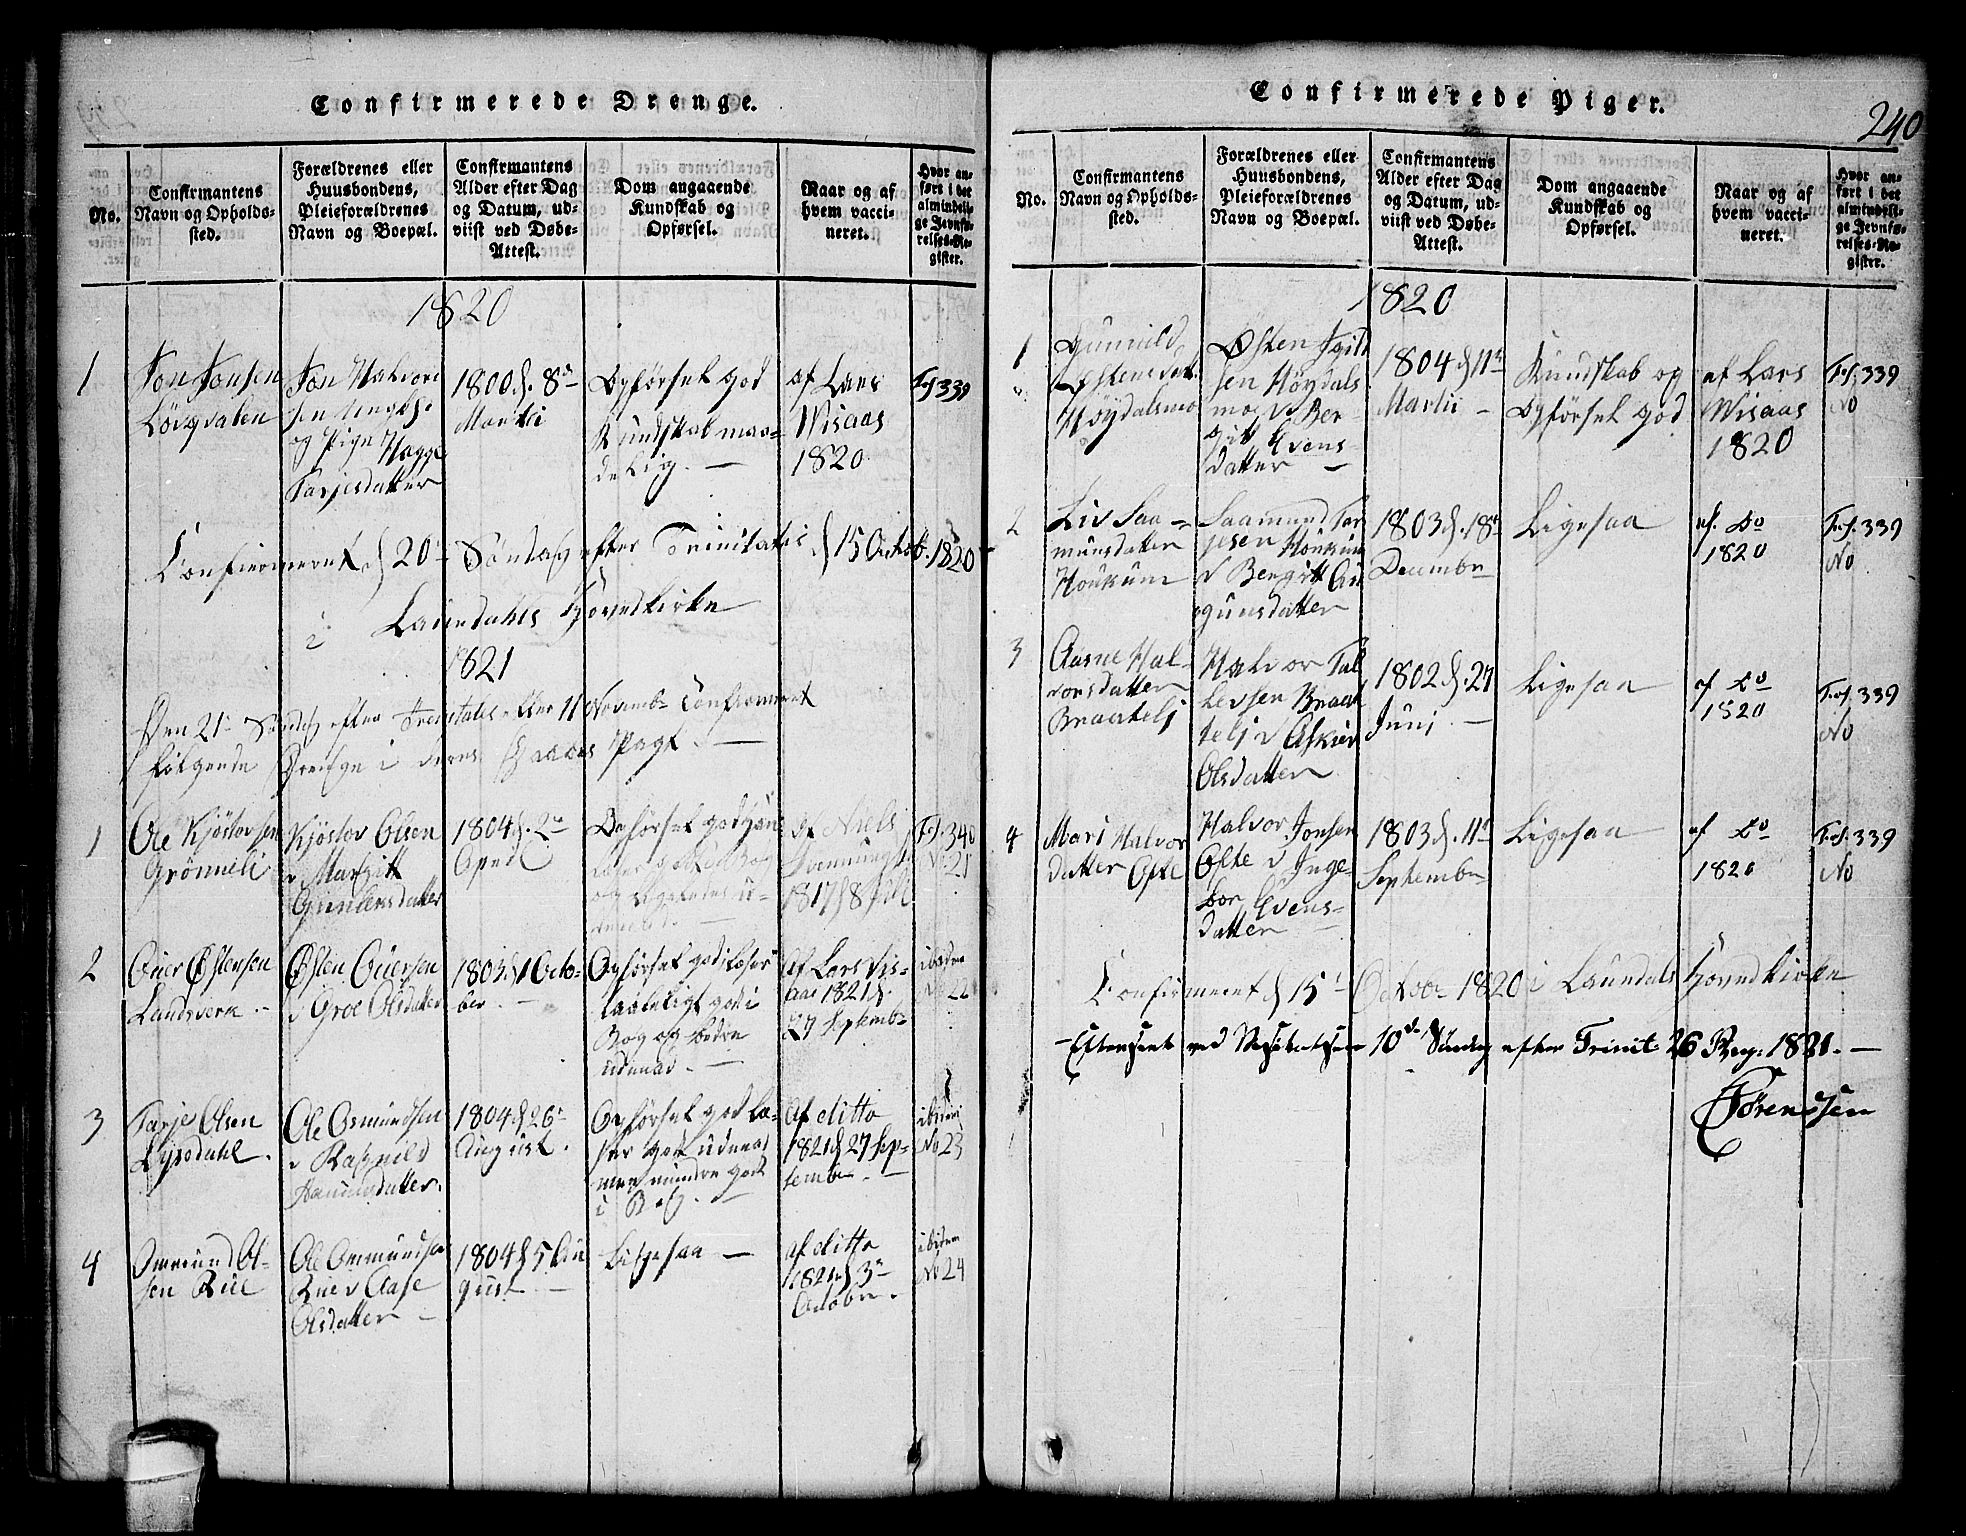 Confirmerede Drenge.
No.
Confirmantens
Navn og Opholds-
sted.
Forældrenes eller
Huusbondens,
Pleieforældrenes
Navn og Boepæl.
Confirmantens
Alder efter Dag
og Datum, ud-
viist ved Døbe-
Attest.
Dom angaaende
Kundskab og
Opførsel.
Naar og af
hvem vacci-
neret.
Hvor an-
ført i det
almindeli-
ge Jevnfø-
relses-Re-
gister.
1820
1
Jon Jonsen
Jon Halvor
sen
og Pige
Tarjesdatter
1800 d. 8de
Martii
Opførsel god
Kundskab maa-
delig. —
af Lars
Wisaas
1820
Fol 339
Confirmeret d 20de Søndag efter Trinitatis d 15 Octob. 1820
i Laurdahls Hovedkirke
1821
Den 21de Søndag efter Trinitatis 11 November Confirmeret
følgende Drenge i
1
Ole Kjöstovsen
Grönneli
Kjöstov Olsen
v Margit
Gunlensdatter
1804 d. 2de
April
Opførsel god
af Niels
1817 d 8 Juli
Fol. 340
No 21
2
Östensen
Landsverk —
Östen
v Groe Olsdatter
1803 d 1 Octo-
ber. —
Opførsel god læser
god i
Bog og bedre
udenad. —
af Lars Vis-
aas 1821 d.
27 Septemb
ibidem
No 22
3
Tarje Olsen
Lysdahl.
Ole Osmundsen
v Ragnild
1804 d 26de
August.
Opførsel god læ-
ser godt udenad
men mindre godt
i Bog. —
af ditto
1821 d 27 Sep-
tember. —
ibidem
No 23
4
Ommund Ol-
sen Rue
Ole Ommundsen
Rue v Aase
Olsdatter —
1804 d 5 Au
gust —
Ligesaa —
af ditto
1821 d 3de
October.
ibidem
No 24
Confirmerede Piger.
240
No.
Confirmantens
Navn og Opholds-
sted.
Forældrenes eller
Huusbondens,
Pleieforældrenes
Navn og Boepæl.
Confirmantens
Alder efter Dag
og Datum, ud-
viist ved Døbe-
Attest.
Dom angaaende
Kundskab og
Opførsel.
Naar og af
hvem vacci-
neret.
Hvor an-
ført i det
almindeli-
ge Jevnfø-
relses-Re-
gister.
1820
1
Gunnild
Östensdatt.
Höydalsmo
Östen
sen Höydals
mo v Ber-
git Evens-
datter —
1804 d 11te
Martii —
Kundskab og
Opførsel god
af Lars
Wisaas
1820
Fol. 339
No
2
Liv Saa-
munsdatter
Houkum
Saamund Tar
jesen Houkum
v Bergitt Au
gunsdatter
1803 d. 18de
December
Ligesaa
af. Do
1820
Fol. 339
No
3
Aasne Hal-
vorsdatter
Braatelj
Halvor Tal
levsen Braat
telj v
Olsdatter
1802 d. 27
Junj. —
Ligesaa
af Do
1820
Fol. 339
No
4
Mari Halvor
datter Ofte
Halvor Jonsen
Ofte v Inge-
bor Evens-
datter —
1803 d. 11te
September
Ligesaa
af Do
1820
Fol. 339
No
Confirmeret d 15de October 1820 i Laurdals Hovedkirke
— Efterseet ved Visitatsen 10de Søndag efter Trinit: 26 Aug: 1821. —
Sörenssen